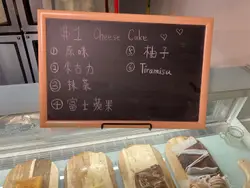 #1 Cheese Cake
① 原味
② 朱古力
③ 抹茶
④ 富士蘋果
⑤ 柚子
⑥ Tiramisu